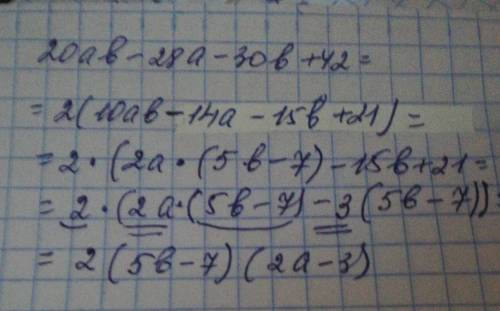 20ab-28a-30b+42=
=2(10ab-14a-15b+21)=
=2·(2a·(5b-7)-15b+21=
=2·(2a·(5b-7)-3(5b-7))=
=2(5b-7)(2a-3)